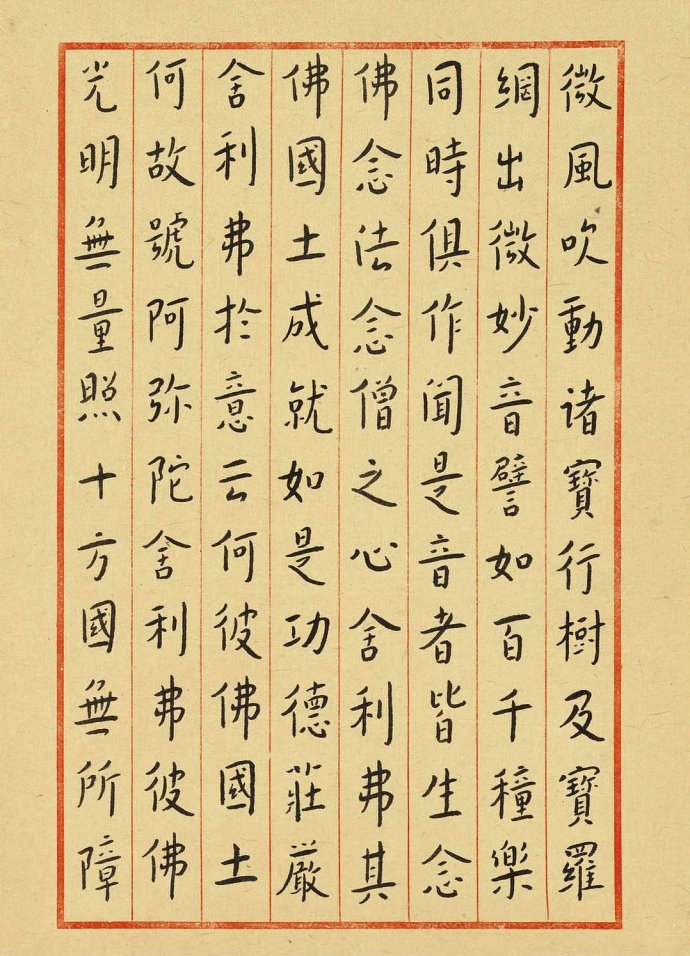 微風吹動诸寶行樹及寶羅
網出微妙音譬如百千種樂
同時俱作聞是音者皆生念
佛念法念僧之心舍利弗其
佛國土成就如是功德莊嚴
舍利弗於意云何彼佛國土
何故號阿弥陀舍利弗彼佛
光明無量照十方國無所障